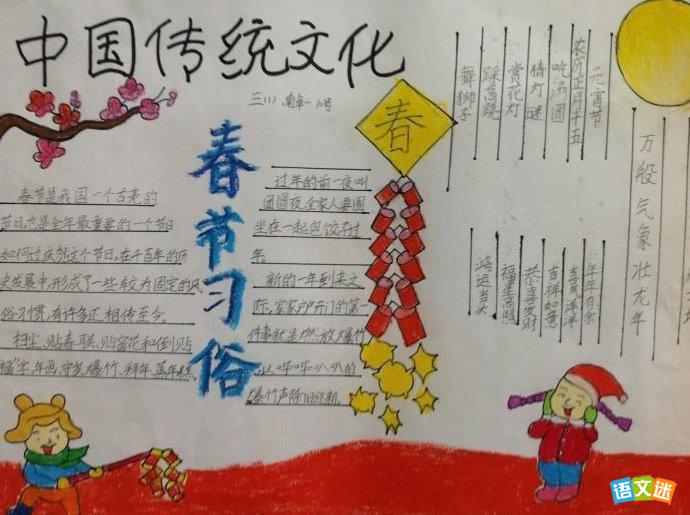 中国传统文化
三(1)
春节习俗
春节是我国一个古老的
节日,也是全年最重要的一个节日
如何过庆贺这个节日,在千百年的历
史发展中,形成了一些较为固定的风
俗习惯,有许多还相传至今。
扫尘,贴春联,贴窗花和倒贴
福"字,年画,守岁,爆竹,拜年,蒸年糕
过年的前一夜叫
团圆夜,全家人要围
坐在一起包饺子过
年
新的一年到来之
际,家家户户开门的第一
件事就是燃放爆竹
以哔哔叭叭的
爆竹声除旧迎新
春
元宵节
农历正月十五
吃汤圆
猜灯谜
赏花灯
踩高跷
舞狮子
年年有余
喜气洋洋
吉祥如意
恭喜发财
福星高照
鸿运当头
万般气象壮龙年
语文迷